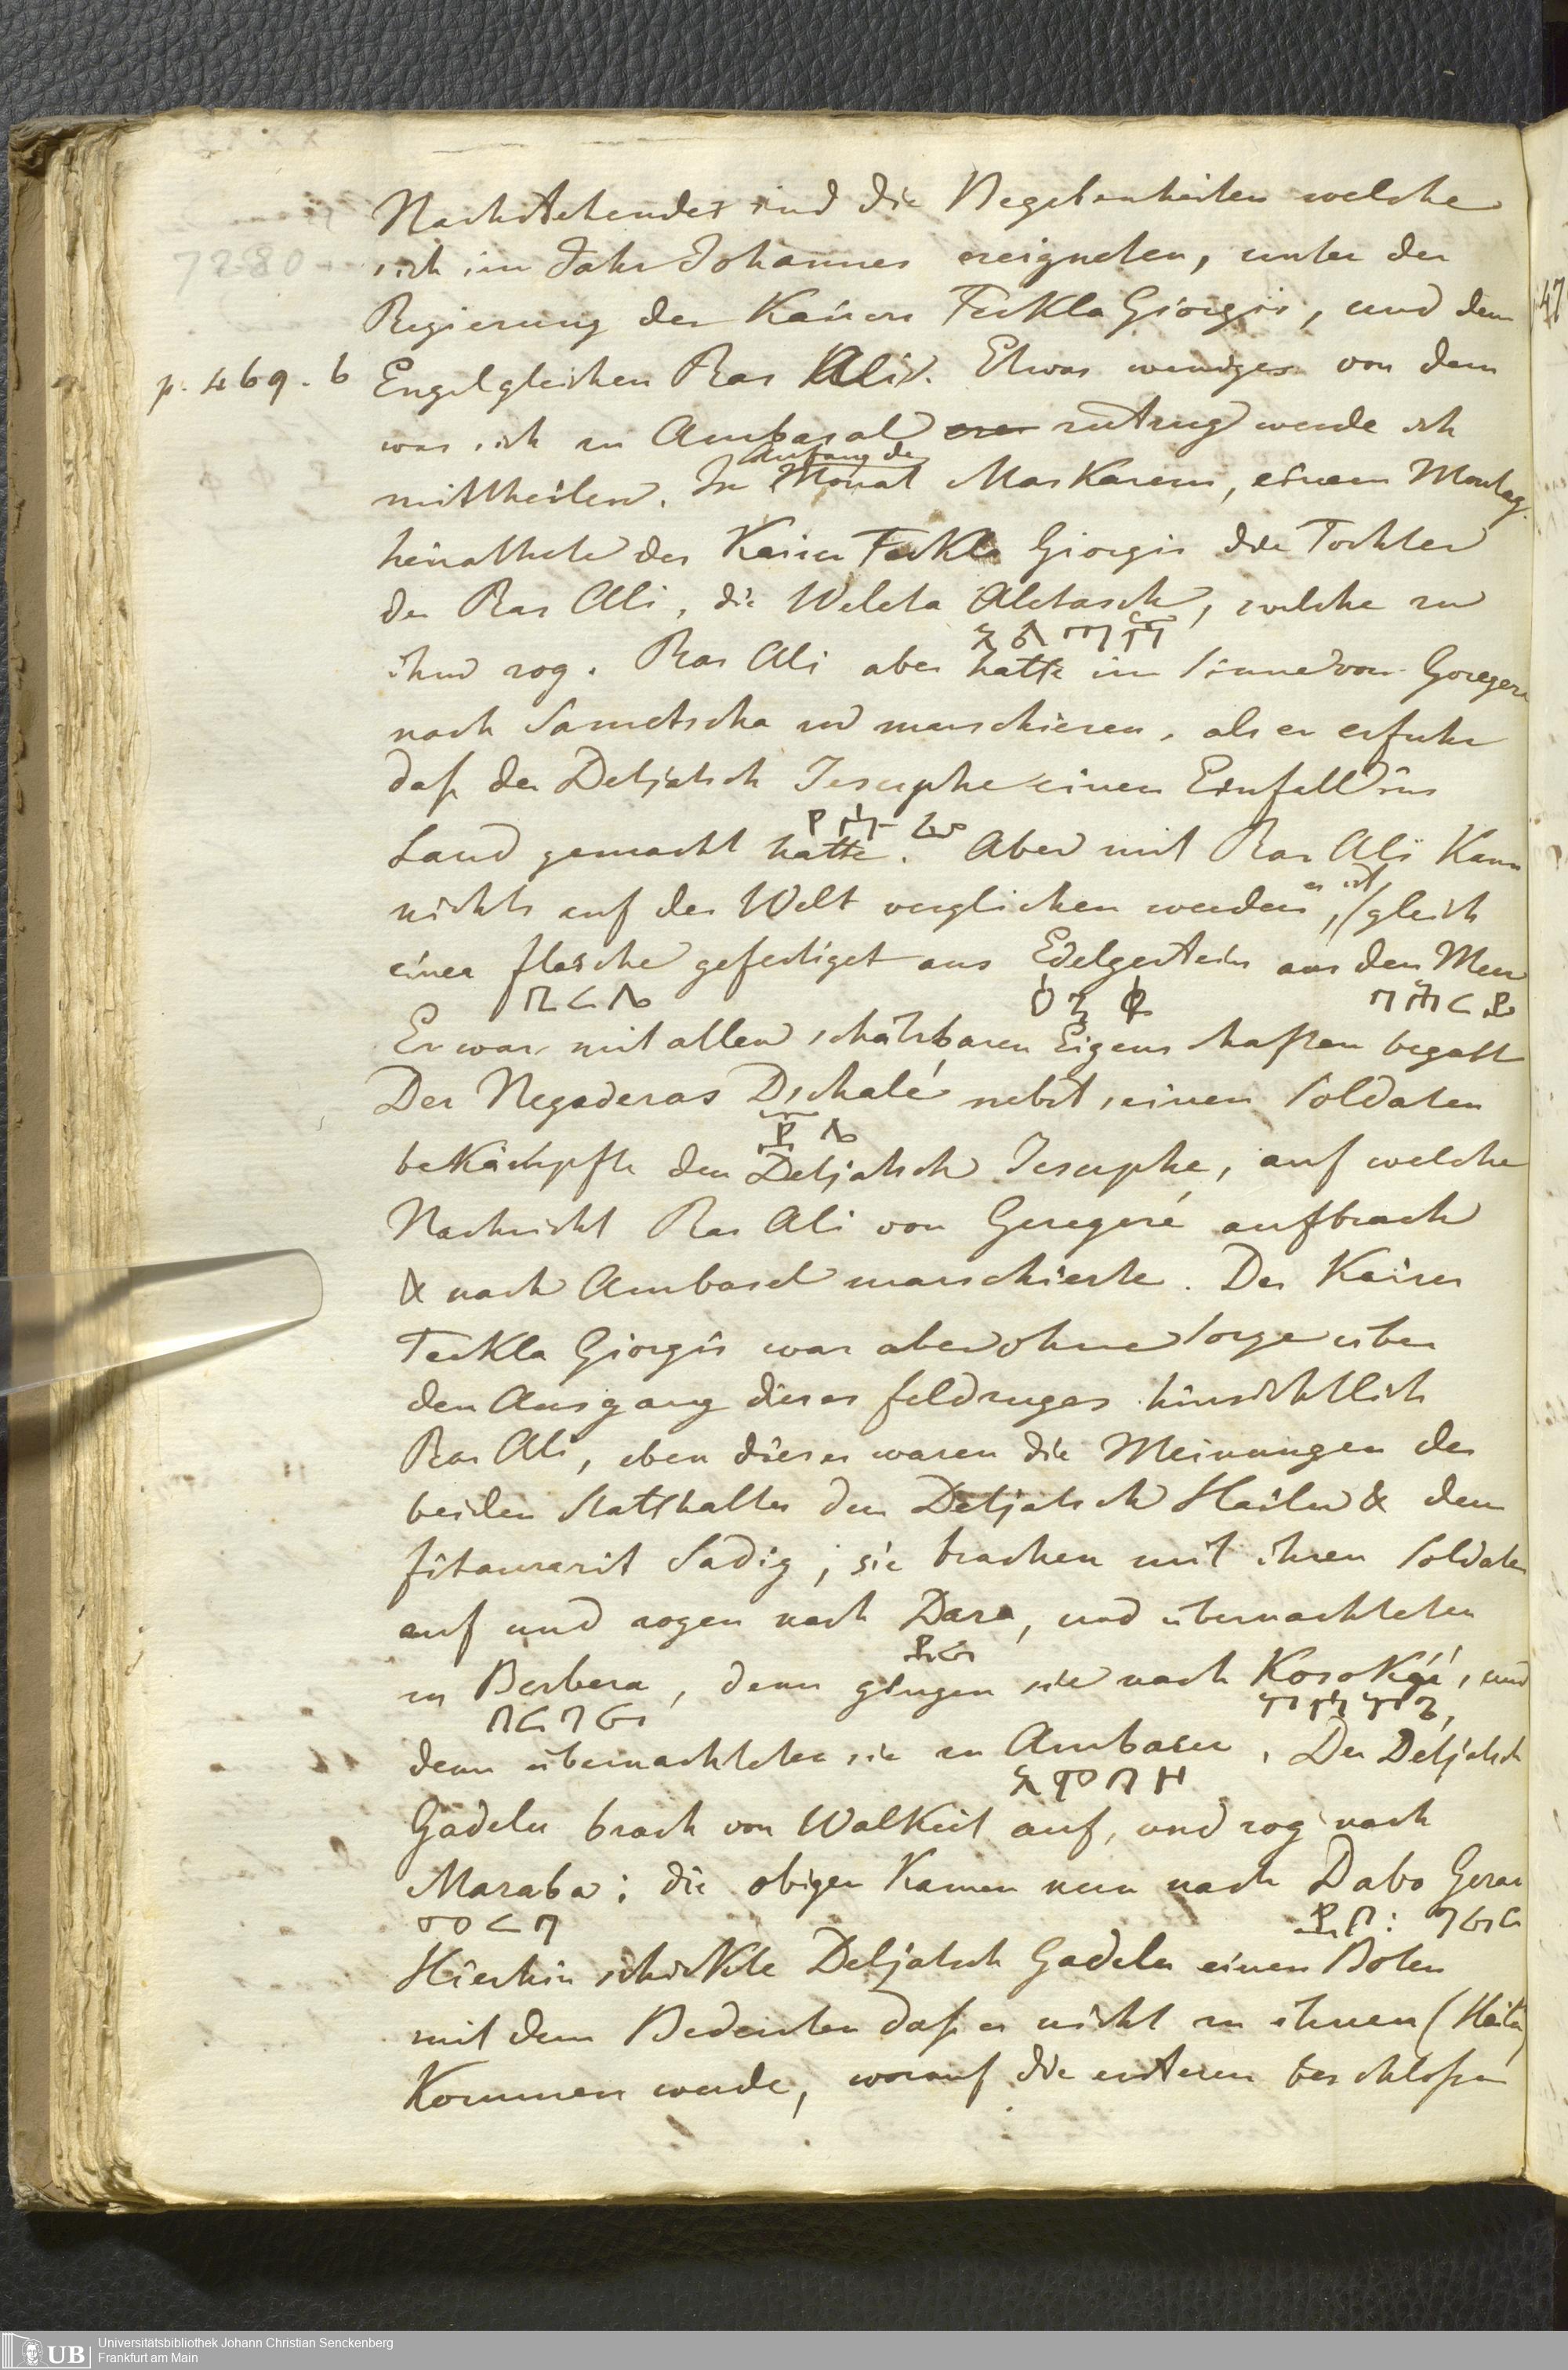 Nachstehendes sind die Begebenheiten welche
sich im Jahr Johannes ereigneten, unter der
Regierung des Kaisers Teckla Giorgis, und dem
p. 469. b Engelgleichen Ras Ali. Etwas weniges von dem
was sich in Ambasal zutrug werde ich
Anfang des
mittheilen. Im Monat Maskarem, einem Montag
heirathete der Kaiser Teckla Giorgis die Tochter
des Ras Ali, die Weleta Aletasch, welche zu
ihm zog. Ras Ali aber hatte im Sinne von Goregera
nach Sametscha zu marschieren, als er erfuhr
daß der Detjatsch Jesuphe einen Einfall ins
Land gemacht hatte. Aber mit Ras Ali kann
er ist
nichts auf der Welt verglichen werden, gleich
einer flasche gefertiget aus Edelgestein aus dem Meer
በረሌ ዕንቍ
Er war mit allen schätzbaren Eigenschaften begabt
Der Negaderas Dschalé nebst seinen Soldaten
ጃሌ
bekämpfte den Detjatsch Jesuphe, auf welche
Nachricht Ras Ali von Geregeré aufbrach
& nach Ambasel marschierte. Der Kaiser
Teckla Giorgis war aber ohne Sorge über
den Ausgang dieses feldzuges hinsichtlich
Ras Ali, eben dieses waren die Meinungen der
beiden Statthalter dem Detjatsch Hailu & dem
fitaurarit Sadig; sie brachen mit ihren Soldaten
auf und zogen nach Dara, und übernachteten
ዳራ
in Berbera, denn gingen sie nach Kosokáé, und
በርበራ
denn übernachteten sie in Ambaser. Der Detjatsch
አምባዘ
Gadelu brach von Walkeit auf, und zog nach
Maraba; die obigen kamen nun nach Dabo Gerar
መረባ ዳቦ: ግራር
Hierhin schickte Detjatsch Gadelu einen Boten
mit dem Bedeuten daß er nicht zu ihnen (Hailu)
kommen werde, worauf die ersteren beschloßen
47
Universitätsbibliothek Johann Christian Senckenberg
UB Frankfurt am Main